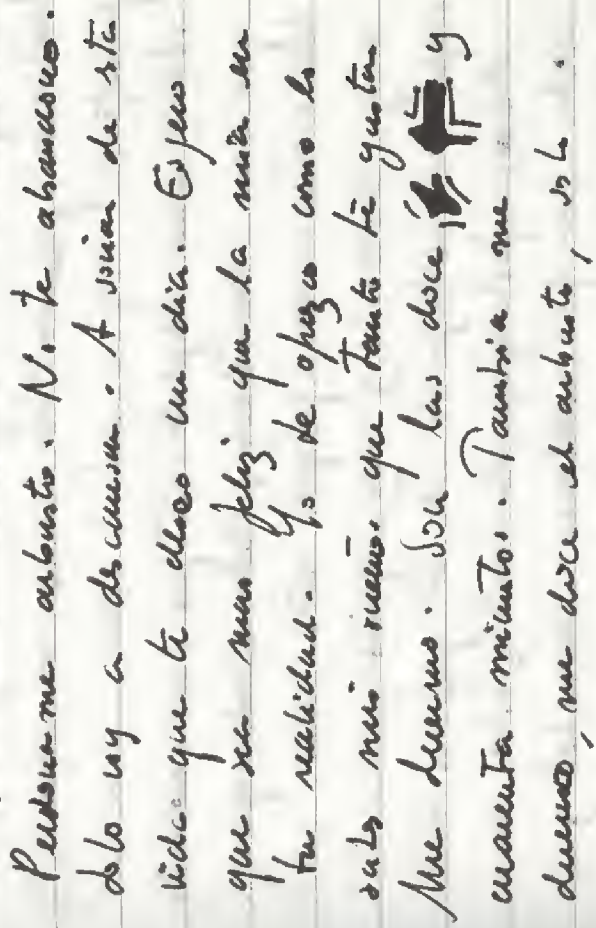 Perdoname arbusto. No te abandono.
Solo voy a descansar. A soñar de sta
vida que te deseo un día. Espero
que sea mas feliz que la mía en
tu realidad. Yo te ofrezco como lo
sabs mis sueños que tanto te gustan
Me duermo. Son las doce y
cuarenta minutos. Tambien me
duermo, me dice el arbusto, sol.